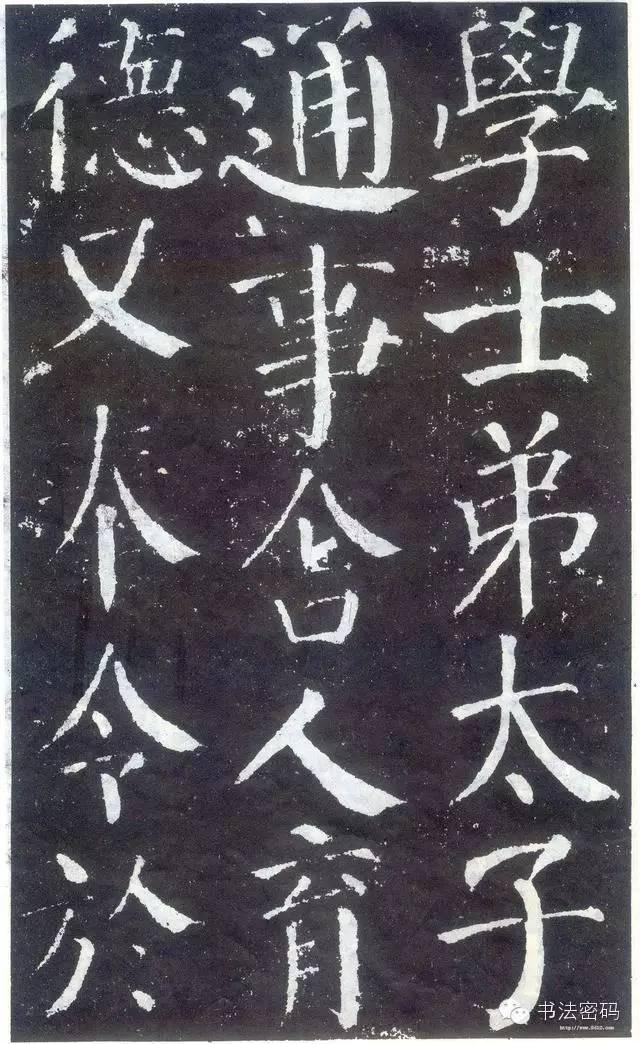 學士弟太子
通事舍人育
德又令於
书法密码